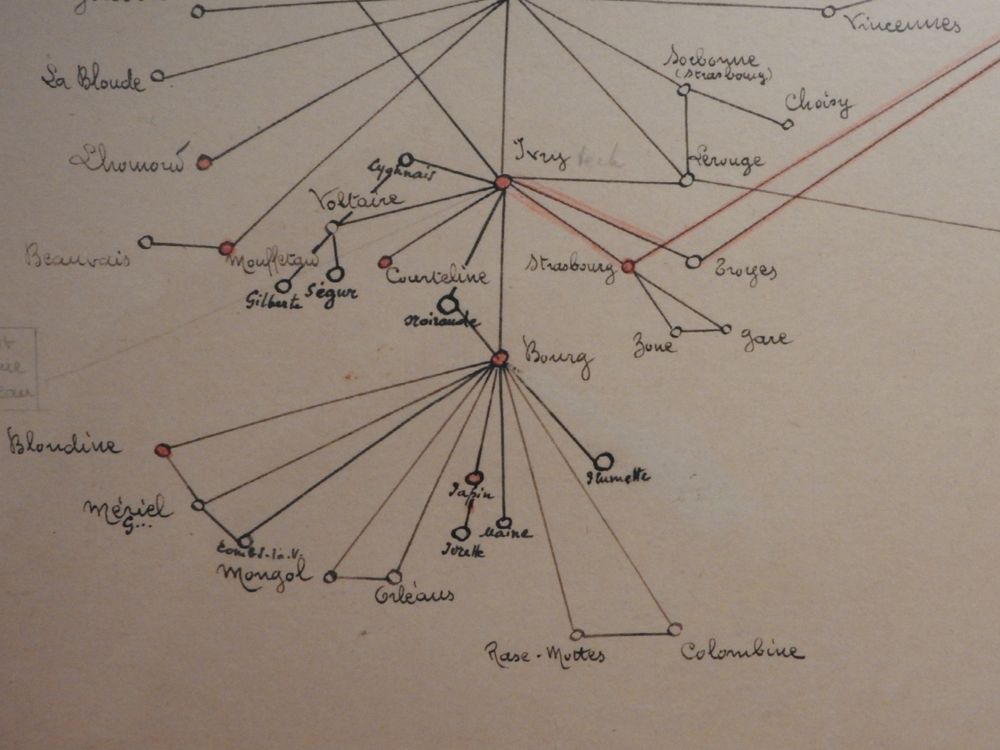 Vincennes
La Blonde
Sorbonne
(Strasbourg)
Choisy
Lhomond
Lyonnais
Ivry
Lerouge
Voltaire
Beauvais
Mouffetard
Courteline
Strasbourg
Troyes
Gilberte
Ségur
Noiraude
Zone
Gare
Bourg
Blondine
Japin
Plumette
Mériel
G...
Maine
Combs-la-V.
Ivette
Mongol
Orléans
Rase-Mottes
Colombine